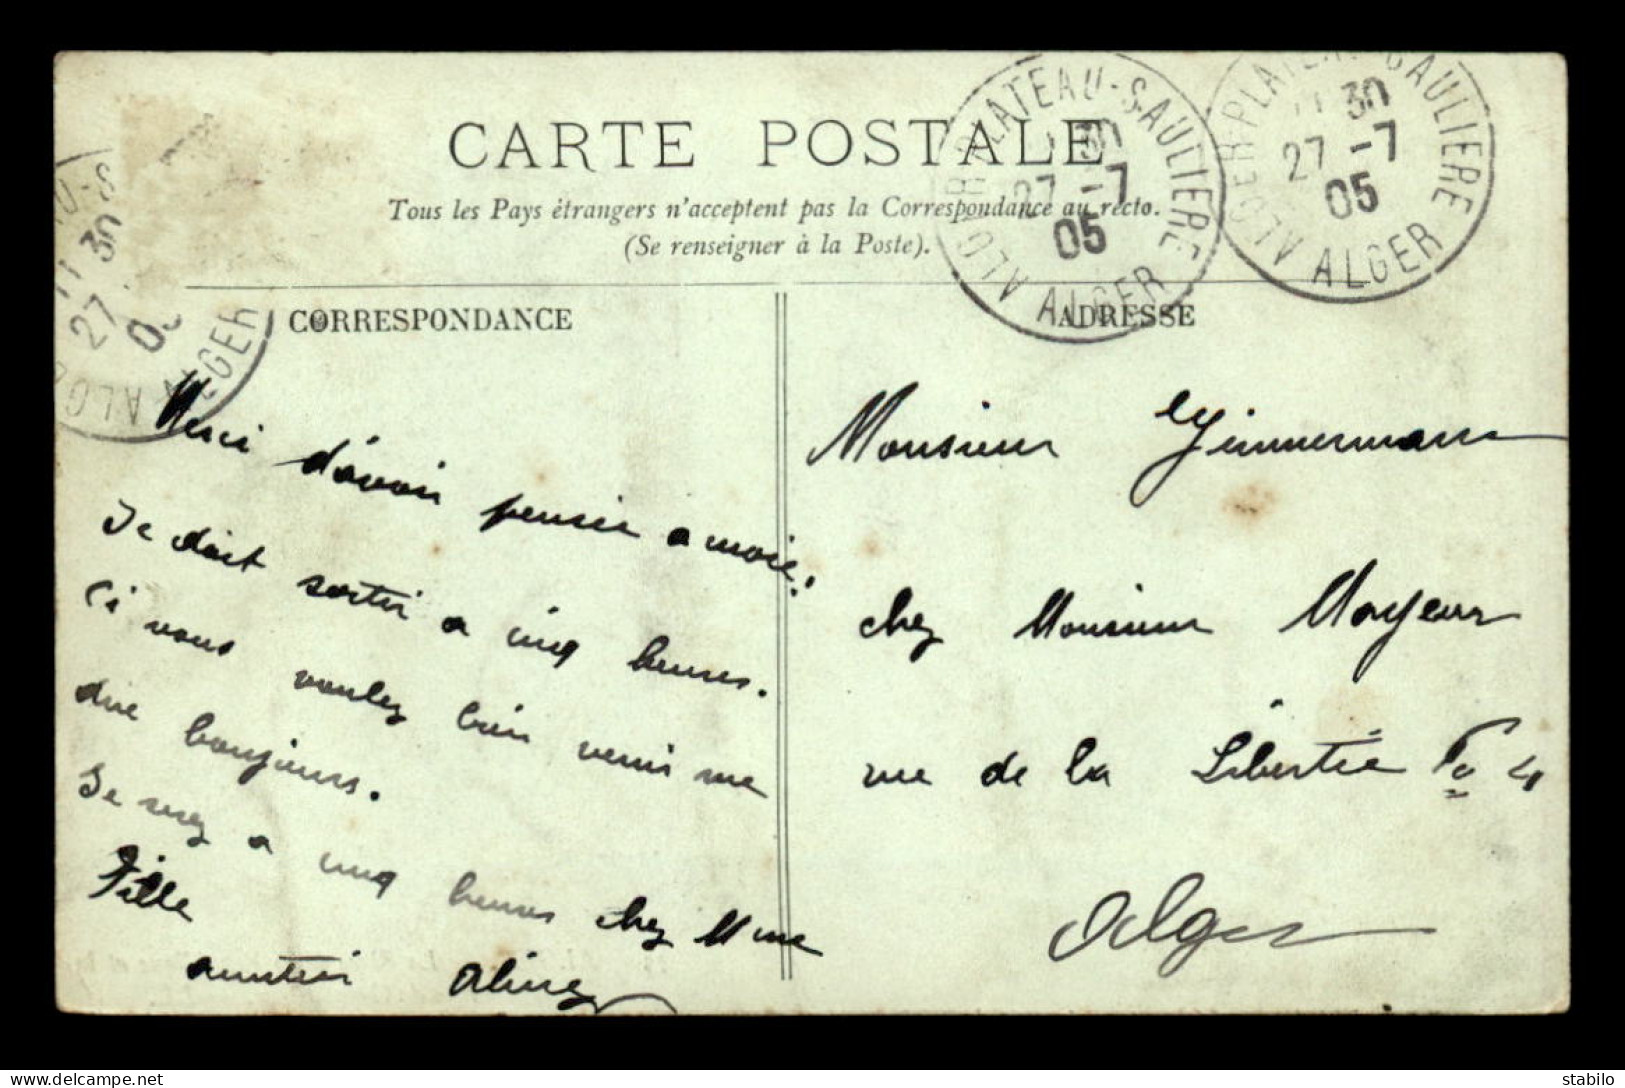 CARTE POSTALE
Tous les Pays étrangers n'acceptent pas la Correspondance au recto.
(Se renseigner à la Poste).
CORRESPONDANCE
Merci d'avoir penser a moie!
Je doit sortir a cinq heures.
Ci vous voulez bien venir me
dire bonjours.
Je serez a cinq heures chez Mme
Fille
Aline
ADRESSE
Monsieur Zimmermann
chez Monsieur Mayeur
rue de la Libertée No 4
Alger
ALGER PLATEAU-SAULIERE
30
27 -7
05
ALGER
ALGER PLATEAU-SAULIERE
11 30
27 -7
05
ALGER
11 30
27
ALGER
stabilo